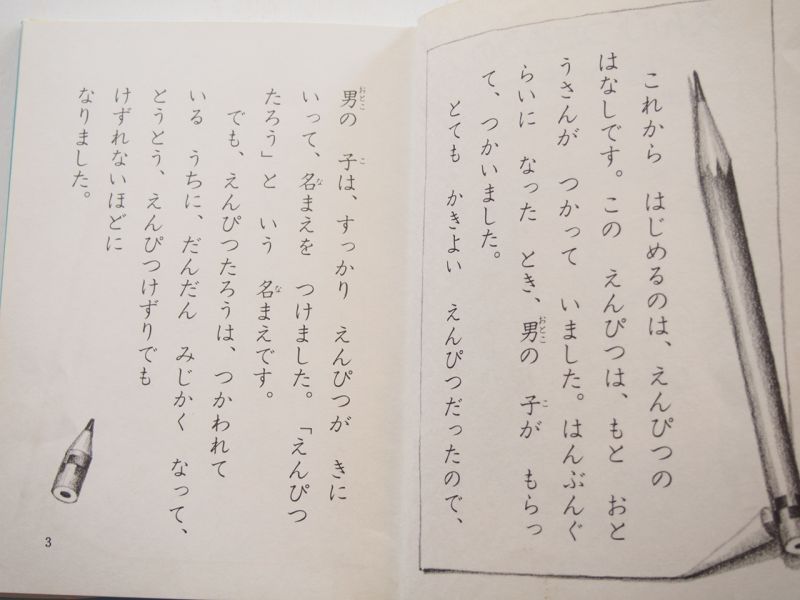 これから　はじめるのは、えんぴつの
はなしです。この　えんぴつは、もと　おと
うさんが　つかって　いました。はんぶんぐ
らいに　なった　とき、男の　子が　もらっ
て、つかいました。
とても　かきよい　えんぴつだったので、
男の　子は、すっかり　えんぴつが　きに
いって、名まえを　つけました。「えんぴつ
たろう」と　いう　名まえです。
でも、えんぴつたろうは、つかわれて
いる　うちに、だんだん　みじかく　なって、
とうとう、えんぴつけずりでも
けずれないほどに
なりました。
3